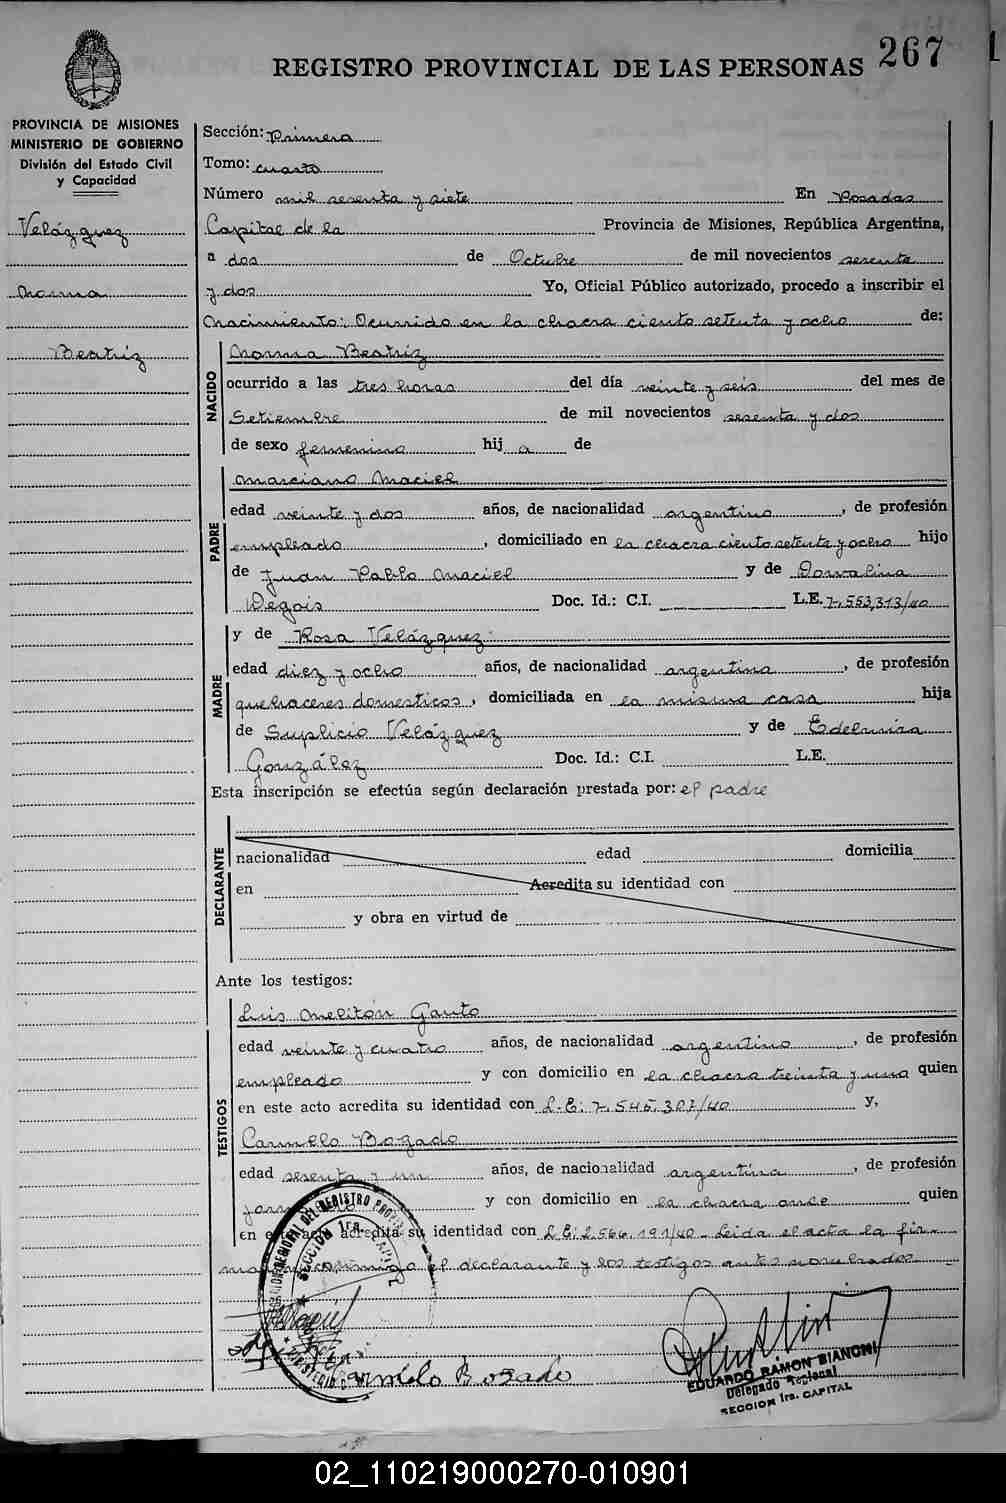 267
REGISTRO PROVINCIAL DE LAS PERSONAS
PROVINCIA DE MISIONES
MINISTERIO DE GOBIERNO
División del Estado Civil
y Capacidad
Velázquez
Norma
Beatriz
Sección: Primera
Tomo: cuarto
Número mil sesenta y siete En Posadas
Capital de la Provincia de Misiones, República Argentina,
a dos de Octubre de mil novecientos sesenta
y dos Yo, Oficial Público autorizado, procedo a inscribir el
Nacimiento: Ocurrido en la chacra ciento setenta y ocho de:
NACIDO
Norma Beatriz
ocurrido a las tres horas del día veinte y seis del mes de
Setiembre de mil novecientos sesenta y dos
de sexo femenino hij a de
PADRE
Marciano Maciel
edad veinte y dos años, de nacionalidad argentino, de profesión
empleado, domiciliado en la chacra ciento setenta y ocho hijo
de Juan Pablo Maciel y de Dorvalina
Degois Doc. Id.: C.I. L.E. 7.553,313/40
MADRE
y de Rosa Velázquez
edad diez y ocho años, de nacionalidad argentina, de profesión
quehaceres domesticos, domiciliada en la misma casa hija
de Suplicio Velázquez y de Edelmira
González Doc. Id.: C.I. L.E.
Esta inscripción se efectúa según declaración prestada por: el padre
DECLARANTE
nacionalidad edad domicilia
en Acredita su identidad con
y obra en virtud de
Ante los testigos:
TESTIGOS
Luis Melitón Gauto
edad veinte y cuatro años, de nacionalidad argentino, de profesión
empleado y con domicilio en la chacra treinta y una quien
en este acto acredita su identidad con L.E: 7.545.307/40 y,
Carmelo Bozado
edad sesenta y un años, de nacionalidad argentina, de profesión
y con domicilio en la chacra once quien
en este acto acredita su identidad con L.E: 2.566.191/40 Leida el acta la fir-
man conmigo el declarante y los testigos antes nombrados.
SECCION 1ra. CAPITAL
Carmelo Bozado
EDUARDO RAMON BIANCHI
Delegado Regional
SECCION 1ra. CAPITAL
02_110219000270-010901